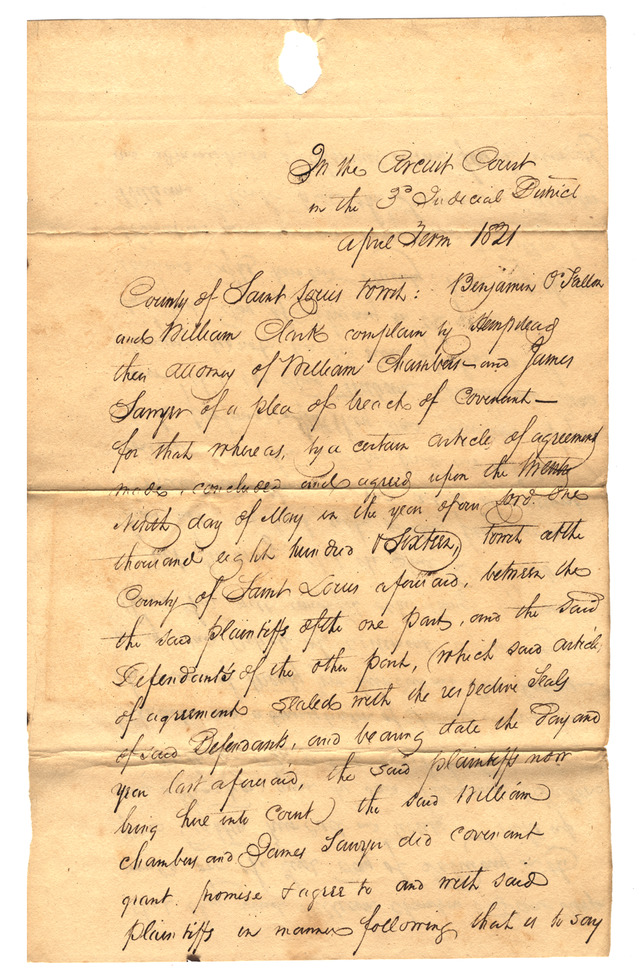 In the Circuit Court
in the 3d Judicial District
April Term 1821
County of Saint Louis towit: Benjamin O'Fallon
and William Clark complain by Hempstead
their attorney of William Chambers and James
Sawyer of a plea of breach of Covenant—
for that whereas, by a certain article, of agreement
made, concluded and agreed upon the twenty
Ninth day of May in the year of our Lord One
thousand eight hundred & Sixteen, towit at the
County of Saint Louis aforesaid, between the
the said plaintiffs of the one part, and the said
Defendants of the other part, (which said article,
of agreement sealed with the respective Seals
of said Defendants, and bearing date the day and
year last aforesaid, the said plaintiffs now
bring here into Court) the said William
Chambers and James Sawyer did covenant
grant, promise & agree to and with said
plaintiffs in manner following that is to say